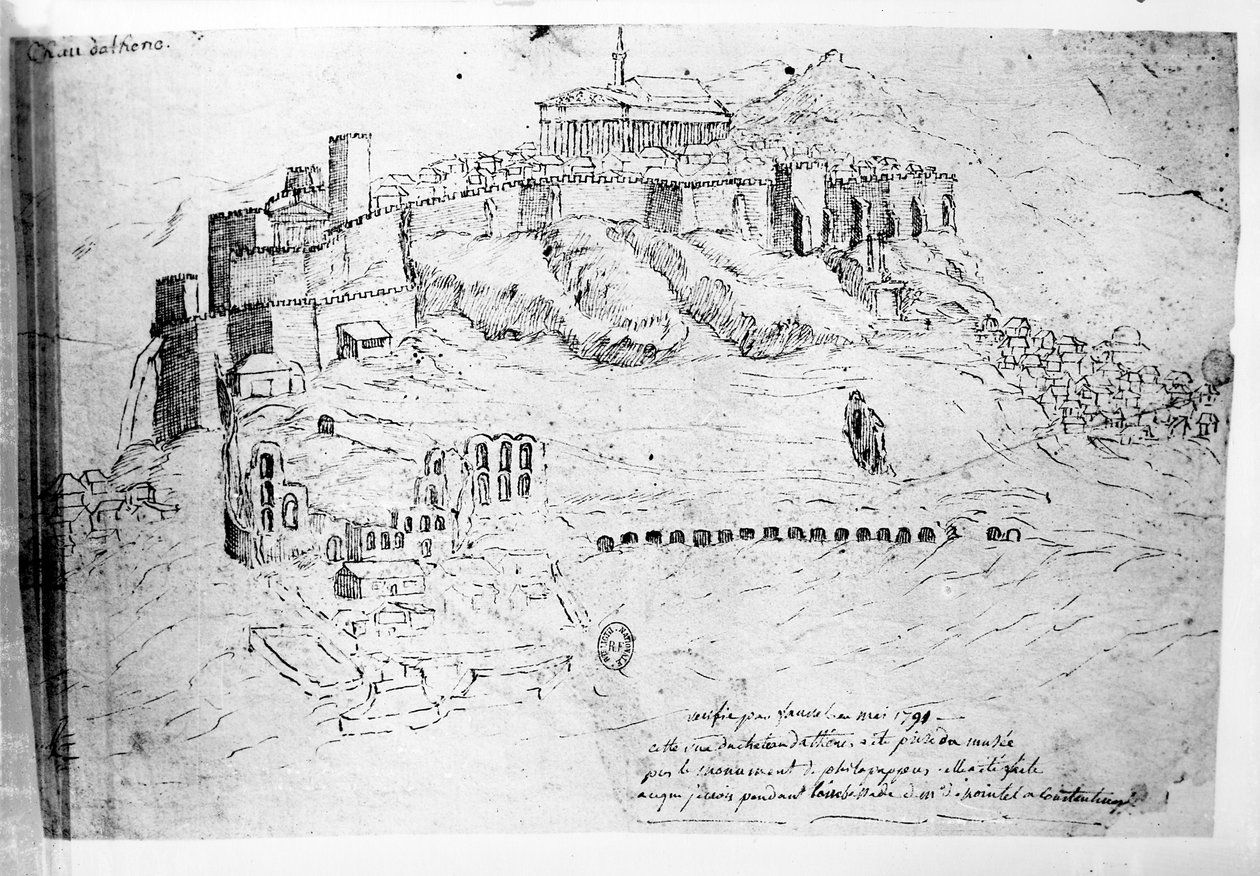 Chau dathene.
verifié par fauvel en mai 1791
cette vue du chateau dathenes a été prise du musée
pres le monument de philopappous elle a été faite
a ce que je crois pendant lambassade de mr de pointel a Constantinople
BIBLIOTH. NATIONALE
RF